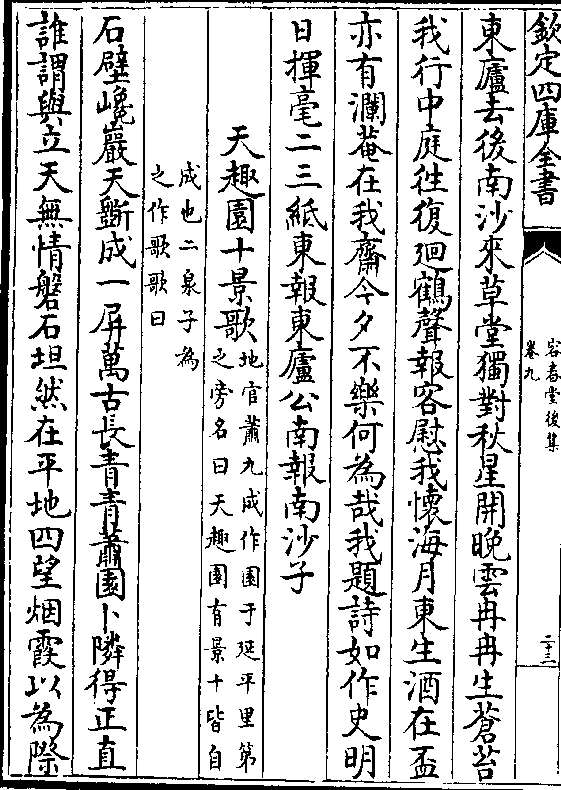 欽定四庫全書
容春堂後集
卷九
二十三
東廬去後南沙來草堂獨對秋星開晚雲冉冉生蒼苔
我行中庭徃復廻鶴聲報客慰我懷海月東生酒在盃
亦有瀾菴在我齋今夕不樂何為哉我題詩如作史明
日揮毫二三紙東報東廬公南報南沙子
天趣園十景歌
地官蕭九成作園于延平里第
之旁名曰天趣園有景十皆自
成也二泉子為
之作歌歌曰
石壁巉巖天斲成一屏萬古長青青蕭園卜隣得正直
誰謂與立天無情磐石坦然在平地四望烟霞以為際